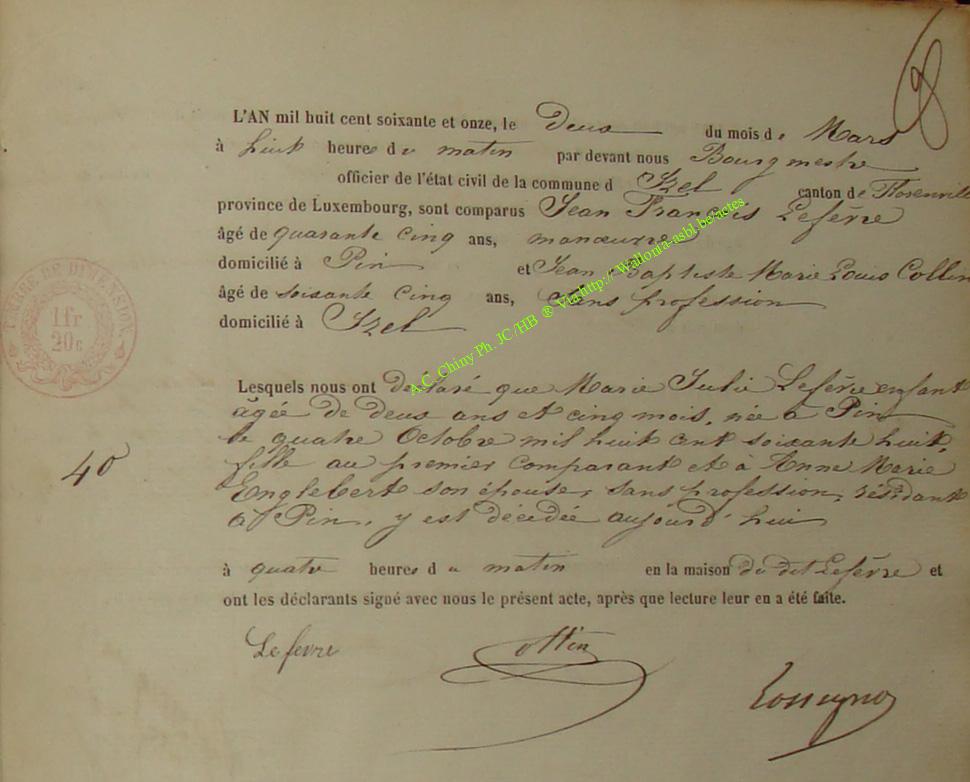 8
L'AN mil huit cent soixante et onze, le Deux du mois de Mars
à huit heures du matin par devant nous Bourgmestre
officier de l'état civil de la commune d Izel canton de Florenville
province de Luxembourg, sont comparus Jean François Lefèvre
âgé de quarante cinq ans, manœuvre
domicilié à Pin et Jean Baptiste Marie Louis Collin
âgé de soixante cinq ans, sans profession
domicilié à Izel
TIMBRE DE DIMENSION.
1 fr
20 c
A.C. Chiny Ph. JC /HB ® Via http://Wallonia-asbl.be/actes
Lesquels nous ont déclaré que Marie Julie Lefèvre enfant
agée de deux ans et cinq mois, née à Pin
le quatre Octobre mil huit cent soixante huit,
fille au premier comparant et à Anne Marie
Englebert son épouse, sans profession, résidant
à Pin, y est décédée aujourd'hui
40
à quatre heures du matin en la maison du dit Lefèvre et
ont les déclarants signé avec nous le présent acte, après que lecture leur en a été faite.
Lefevre Collin